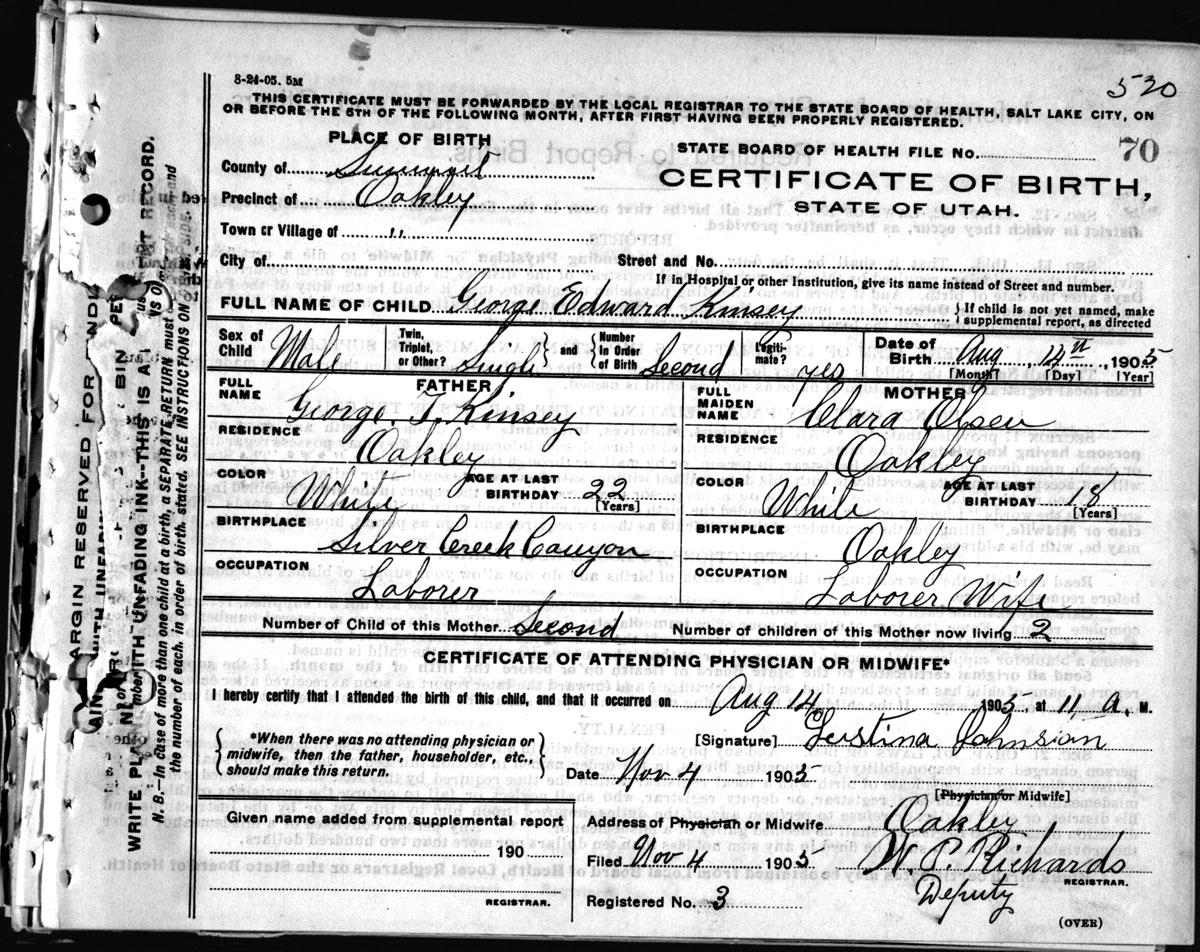 8-24-05. 5M
530
THIS CERTIFICATE MUST BE FORWARDED BY THE LOCAL REGISTRAR TO THE STATE BOARD OF HEALTH, SALT LAKE CITY, ON
OR BEFORE THE 5TH OF THE FOLLOWING MONTH, AFTER FIRST HAVING BEEN PROPERLY REGISTERED.
PLACE OF BIRTH
STATE BOARD OF HEALTH FILE No. 70
County of Summit
CERTIFICATE OF BIRTH,
Precinct of Oakley
STATE OF UTAH.
Town or Village of "
City of
Street and No.
If in Hospital or other Institution, give its name instead of Street and number.
FULL NAME OF CHILD George Edward Kinsey { If child is not yet named, make supplemental report, as directed
Sex of Child Male
Twin, Triplet, or Other? Single } and { Number in Order of Birth Second
Legitimate? yes
Date of Birth Aug 14th, 1905
[Month] [Day] [Year]
FATHER
FULL NAME George T. Kinsey
RESIDENCE Oakley
COLOR White
AGE AT LAST BIRTHDAY 22
[Years]
BIRTHPLACE Silver Creek Canyon
OCCUPATION Laborer
MOTHER
FULL MAIDEN NAME Clara Olsen
RESIDENCE Oakley
COLOR White
AGE AT LAST BIRTHDAY 18
[Years]
BIRTHPLACE Oakley
OCCUPATION Laborer Wife
Number of Child of this Mother Second Number of children of this Mother now living 2
CERTIFICATE OF ATTENDING PHYSICIAN OR MIDWIFE*
I hereby certify that I attended the birth of this child, and that it occurred on Aug 14, 1905 at 11, a. M.
{ *When there was no attending physician or midwife, then the father, householder, etc., should make this return. }
[Signature] Johnson
Date Nov 4 1905
[Physician or Midwife]
Given name added from supplemental report
190
REGISTRAR.
Address of Physician or Midwife Oakley
Filed Nov 4 1905 W. P. Richards
REGISTRAR.
Registered No. 3 Deputy
(OVER)
MARGIN RESERVED FOR
WRITE PLAINLY WITH UNFADING INK--THIS IS A RECORD.
N. B.--In case of more than one child at a birth, a SEPARATE RETURN must be
the number of each, in order of birth, stated. SEE INSTRUCTIONS ON